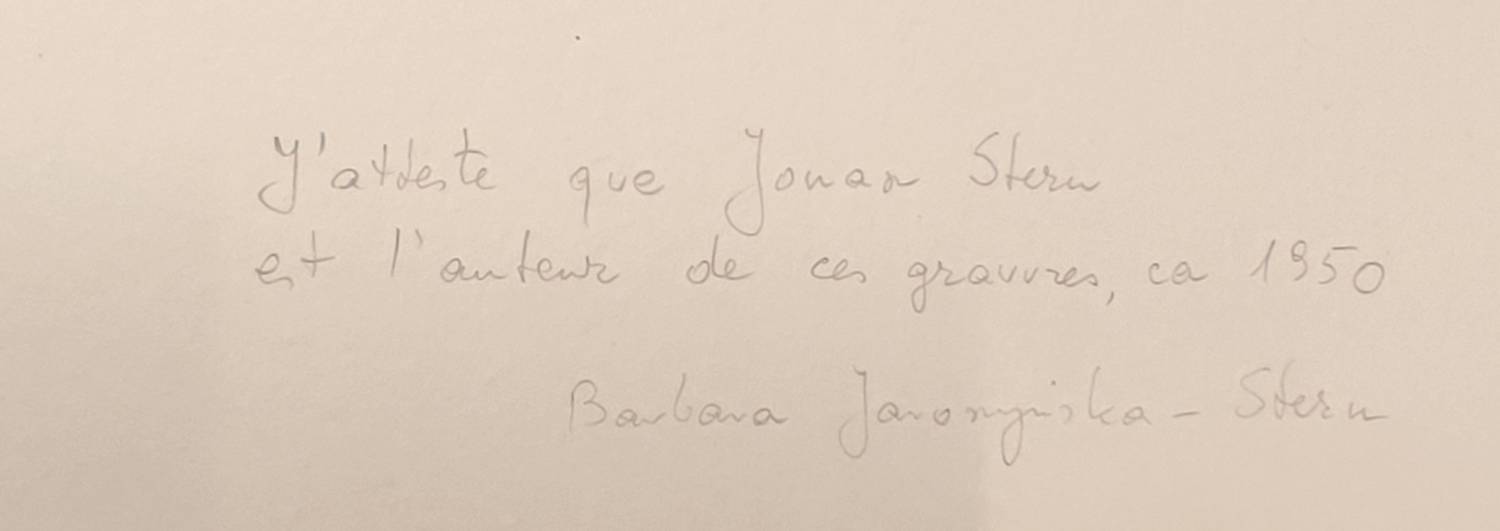 J'atteste que Jonasz Stern
est l'auteur de ces gravures, ca 1950
Barbara Jaroszyńska - Stern